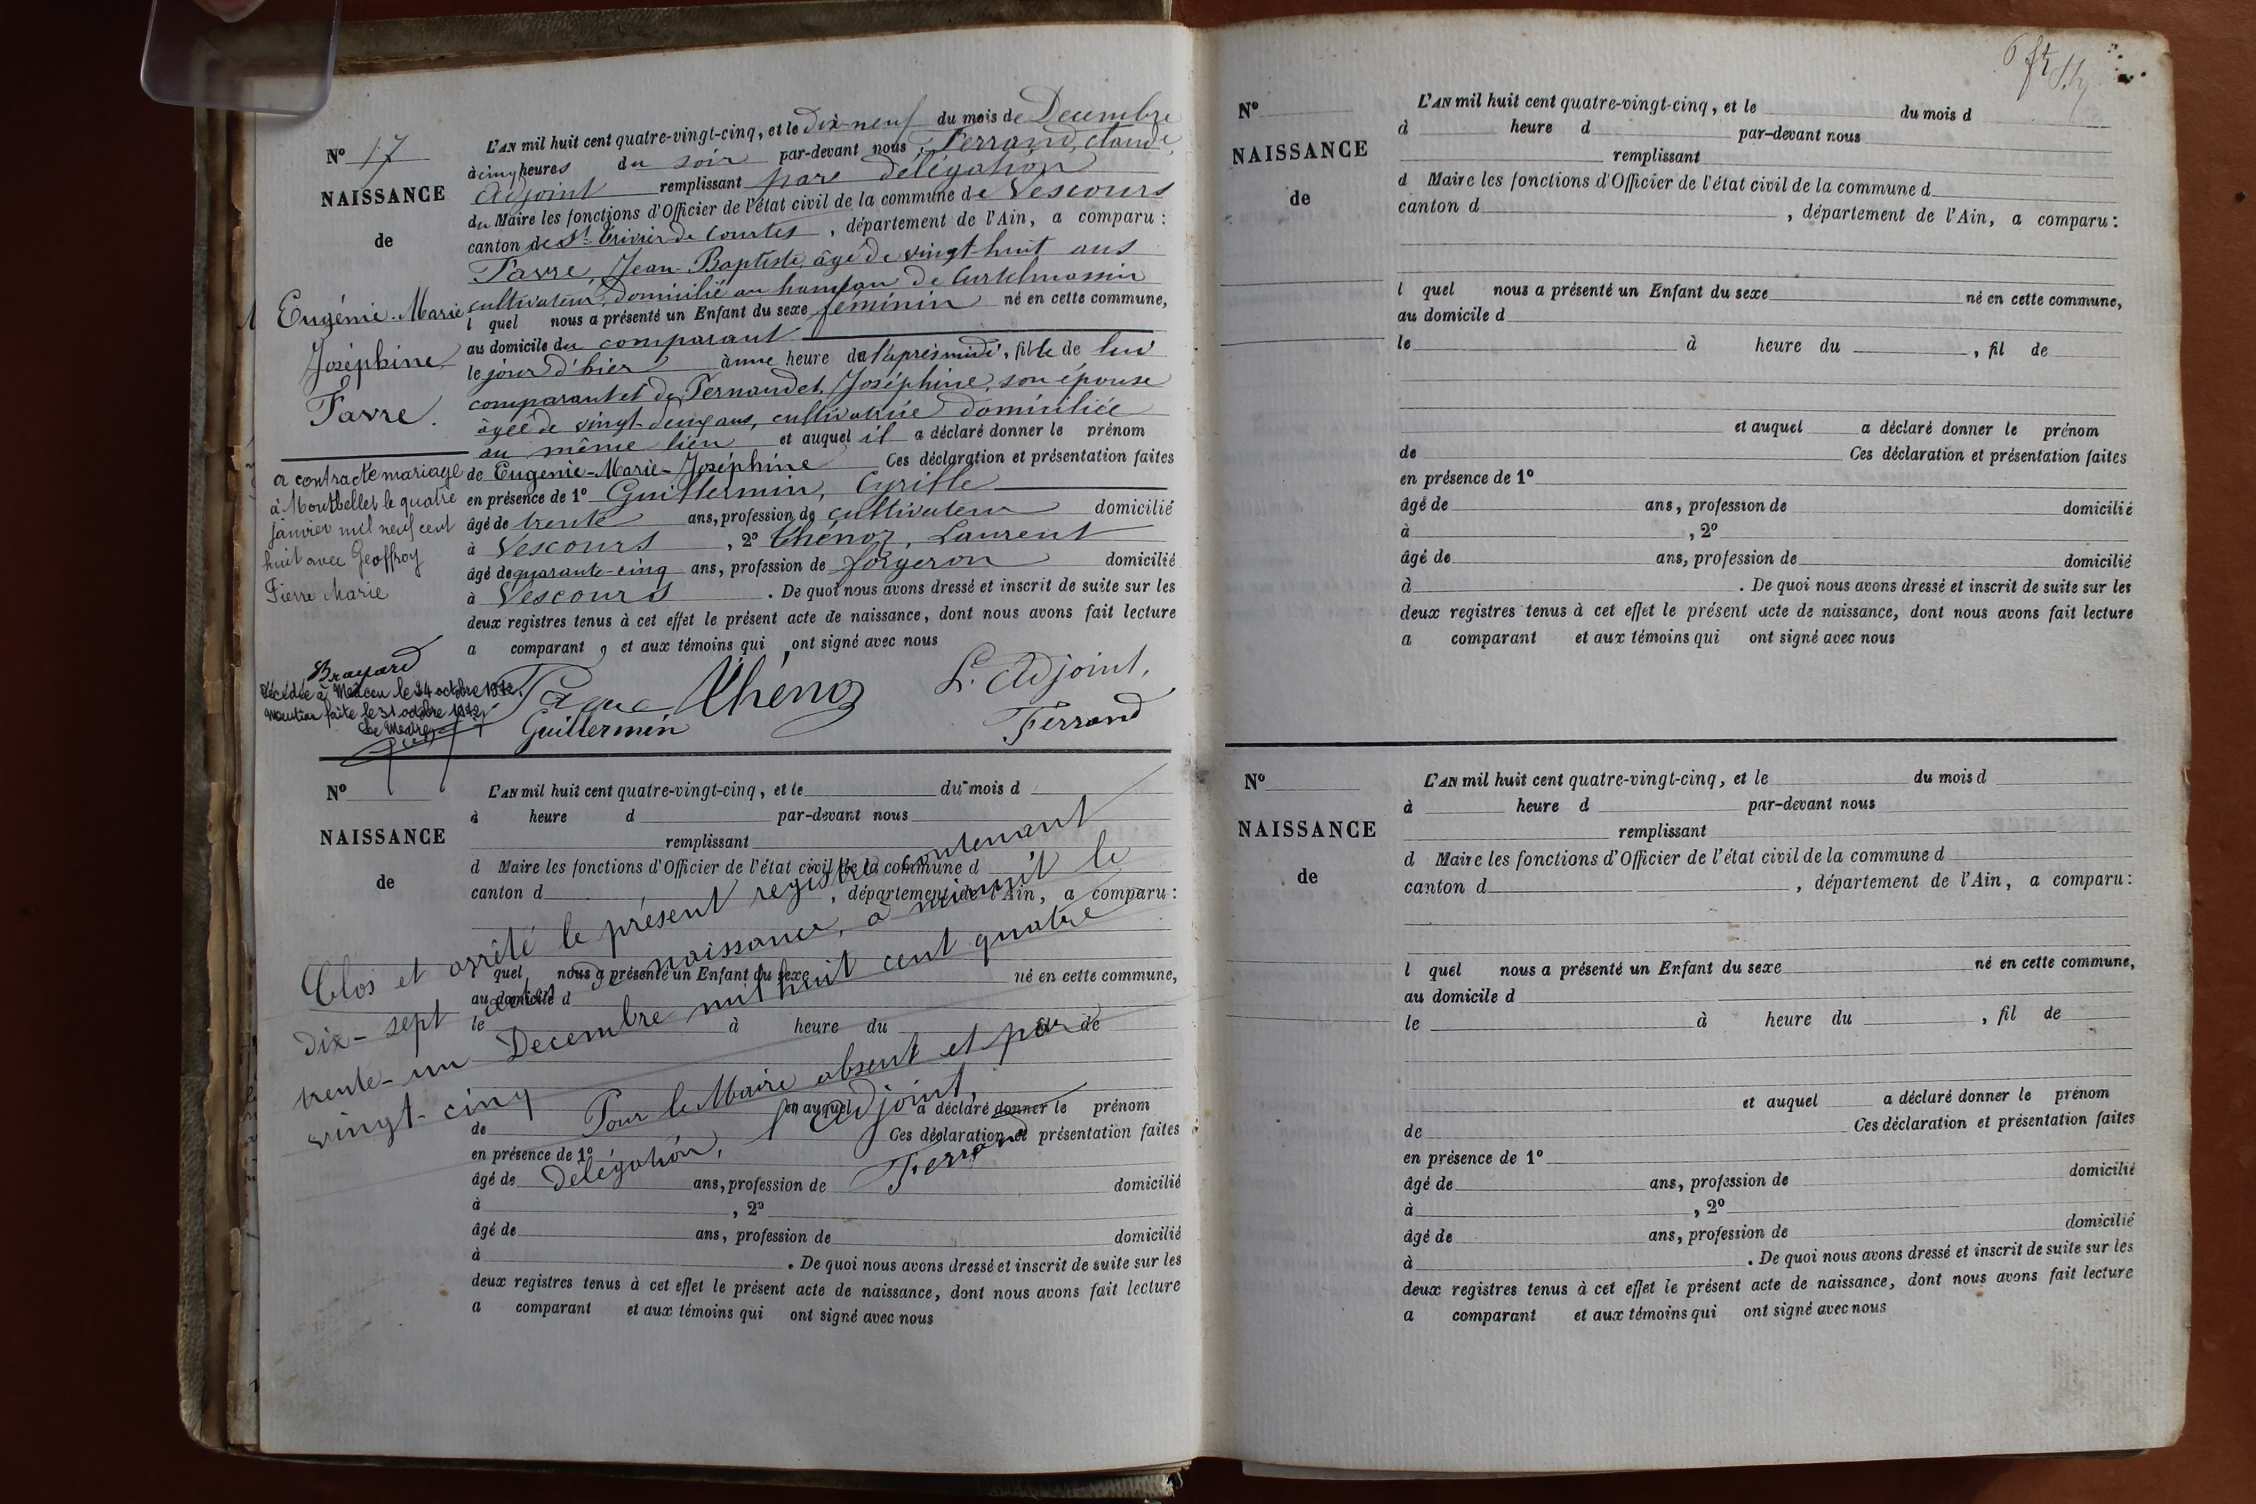 N° 17
NAISSANCE
de
Eugénie-Marie
Joséphine
Favre.
a contracté mariage
à Montbellet le quatre
janvier mil neuf cent
huit avec Geoffroy
Pierre Marie
Brayard
Décédée à Mâcon le 24 octobre 1972.
Mention faite le 31 octobre 1972
Le Maire
L'AN mil huit cent quatre-vingt-cinq, et le dix-neuf du mois de Decembre
à cinq heures du soir par-devant nous, Ferrand, Claude,
Adjoint remplissant pare délégation
du Maire les fonctions d'Officier de l'état civil de la commune de Vescours
canton de St Trivier de Courtes, département de l'Ain, a comparu:
Favre, Jean-Baptiste, âgé de vingt-huit ans
cultivateur, domicilié au hameau de Curtelmassin
l quel nous a présenté un Enfant du sexe féminin né en cette commune,
au domicile du comparant
le jour d'hier à une heure de l'après midi, fille de lui
comparant et de Fernandet, Joséphine, son épouse
âgée de vingt-deux ans, cultivatrice domiciliée
au même lieu et auquel il a déclaré donner le prénom
de Eugénie-Marie-Joséphine Ces déclaration et présentation faites
en présence de 1° Guillermin, Cyrille
âgé de trente ans, profession de cultivateur domicilié
à Vescours, 2° Thénoz, Laurent
âgé de quarante-cinq ans, profession de forgeron domicilié
à Vescours. De quoi nous avons dressé et inscrit de suite sur les
deux registres tenus à cet effet le présent acte de naissance, dont nous avons fait lecture
a comparant, et aux témoins qui ont signé avec nous
Favre Thénoz L'Adjoint,
Guillermin Ferrand
N°
NAISSANCE
de
L'AN mil huit cent quatre-vingt-cinq, et le du mois d
à heure d par-devant nous
remplissant
d Maire les fonctions d'Officier de l'état civil de la commune d
canton d , département de l'Ain, a comparu:
quel nous a présenté un Enfant du sexe né en cette commune,
au domicile d
le à heure du fil de
et auquel a déclaré donner le prénom
de Ces déclaration et présentation faites
en présence de 1°
âgé de ans, profession de domicilié
à , 2°
âgé de ans, profession de domicilié
à . De quoi nous avons dressé et inscrit de suite sur les
deux registres tenus à cet effet le présent acte de naissance, dont nous avons fait lecture
a comparant et aux témoins qui ont signé avec nous
Clos et arrêté le présent registre contenant
dix-sept actes de naissance, à minuit le
trente-un Decembre mil huit cent quatre
vingt-cinq
Pour le Maire absent et par
delégation, l'Adjoint,
Ferrand
N°
NAISSANCE
de
L'AN mil huit cent quatre-vingt-cinq, et le du mois d
à heure d par-devant nous
remplissant
d Maire les fonctions d'Officier de l'état civil de la commune d
canton d , département de l'Ain, a comparu:
l quel nous a présenté un Enfant du sexe né en cette commune,
au domicile d
le à heure du , fil de
et auquel a déclaré donner le prénom
de Ces déclaration et présentation faites
en présence de 1°
âgé de ans, profession de domicilié
à , 2°
âgé de ans, profession de domicilié
à . De quoi nous avons dressé et inscrit de suite sur les
deux registres tenus à cet effet le présent acte de naissance, dont nous avons fait lecture
a comparant et aux témoins qui ont signé avec nous
N°
NAISSANCE
de
L'AN mil huit cent quatre-vingt-cinq, et le du mois d
à heure d par-devant nous
remplissant
d Maire les fonctions d'Officier de l'état civil de la commune d
canton d , département de l'Ain, a comparu:
l quel nous a présenté un Enfant du sexe né en cette commune,
au domicile d
le à heure du , fil de
et auquel a déclaré donner le prénom
de Ces déclaration et présentation faites
en présence de 1°
âgé de ans, profession de domicilié
à , 2°
âgé de ans, profession de domicilié
à . De quoi nous avons dressé et inscrit de suite sur les
deux registres tenus à cet effet le présent acte de naissance, dont nous avons fait lecture
a comparant et aux témoins qui ont signé avec nous